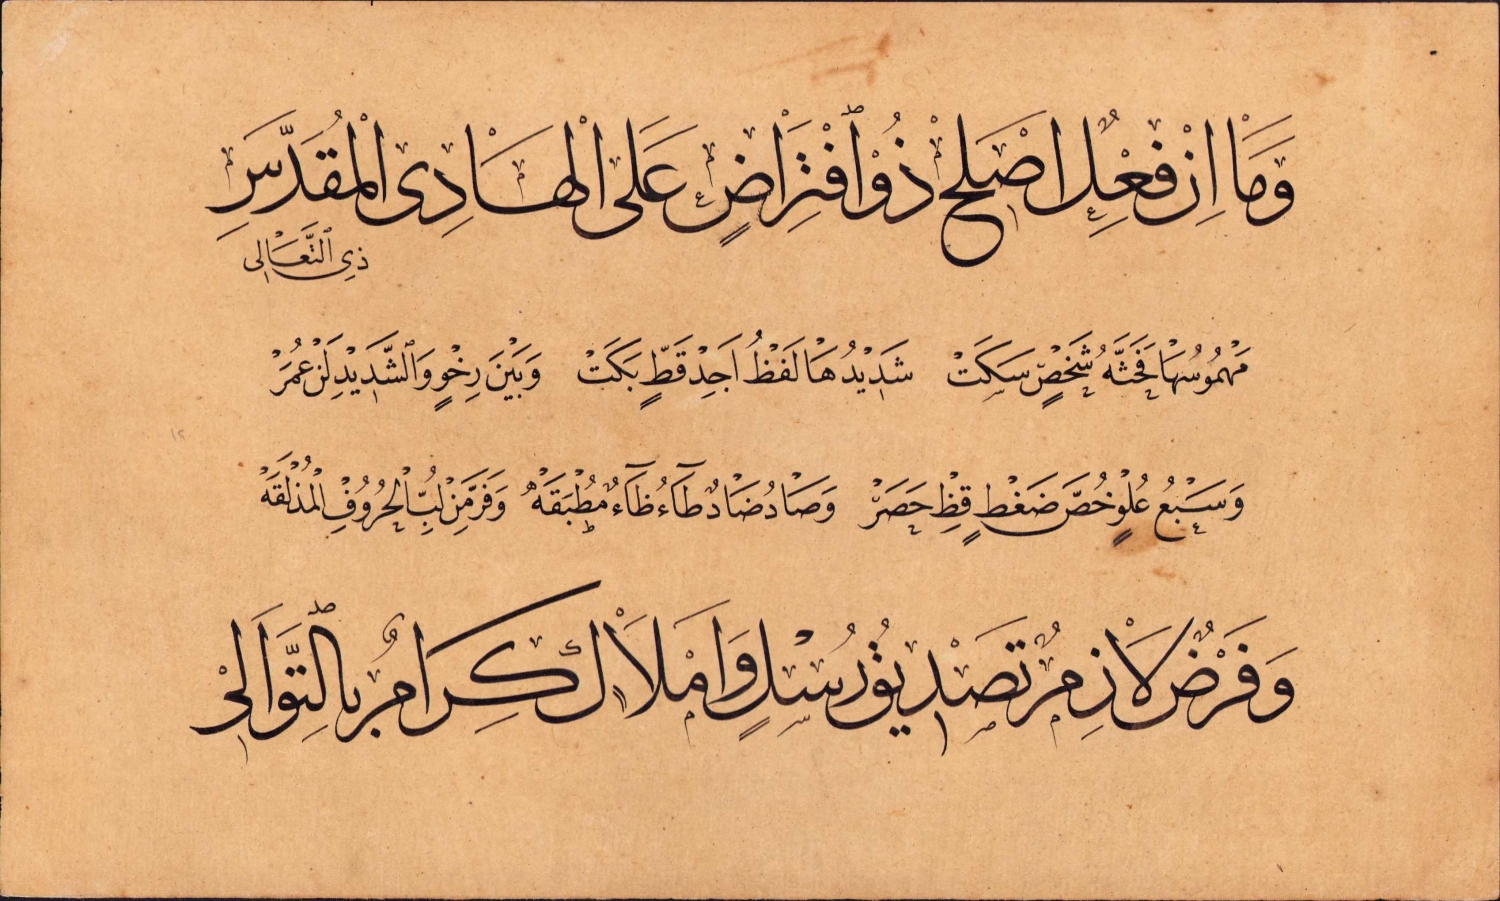 وَمَا اِنْ فِعْلٌ اَصْلَحُ ذُو افْتِرَاضٍ عَلَى الْهَادِى الْمُقَدَّسِ
ذِى التَّعَالِى
مَهْمُوسُهَا فَحَثَّهُ شَخْصٌ سَكَتْ شَدِيْدُهَا لَفْظُ اَجِدْ قَطٍ بَكَتْ وَبَيْنَ رِخْوٍ وَالشَّدِيْدِ لِنْ عُمَرْ
وَسَبْعُ عُلْوٍ خُصَّ ضَغْطٍ قِظْ حَصَرْ وَصَادُ ضَادٌ طَاءُ ظَاءٌ مُطْبَقَهْ وَفَرَّ مِنْ لُبِّ الْحُرُوفِ الْمُذْلَقَهْ
وَفَرْضٌ لَازِمٌ تَصْدِيقُ رُسْلٍ وَاَمْلَاكٍ كِرَامٍ بِالتَّوَالِى